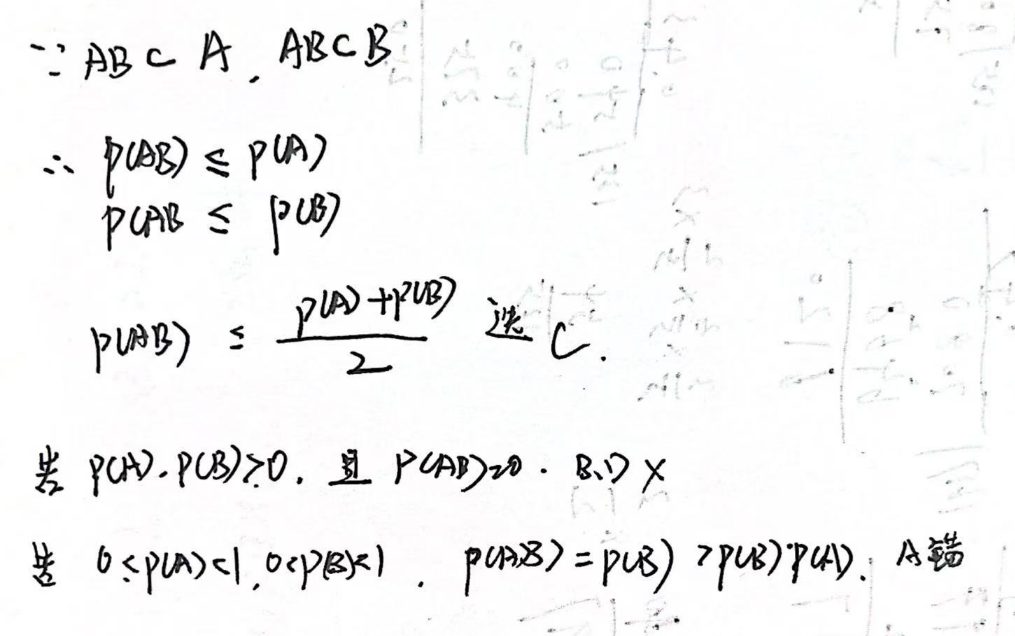 ∵ AB ⊂ A , AB ⊂ B
∴ P(AB) ≤ P(A)
P(AB ≤ P(B)
P(AB) ≤ (P(A)+P(B))/2 选 C.
若 P(A)·P(B)>0. 且 P(AB)=0 . B.D ×
若 0<P(A)<1, 0<P(B)<1 . P(AB) = P(B) > P(B)·P(A). A错